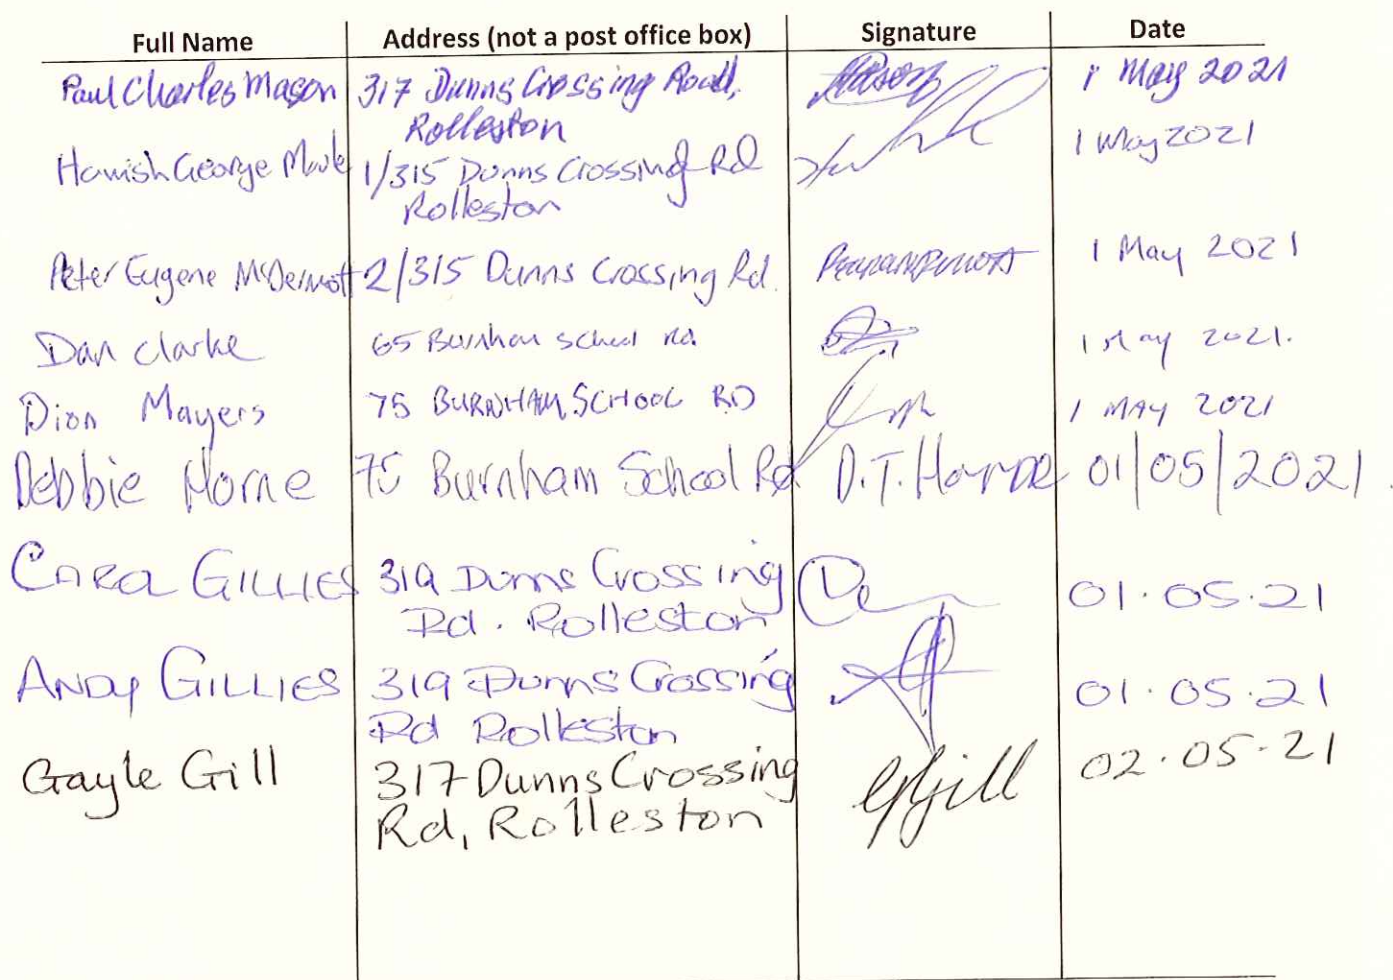 Full Name Address (not a post office box) Signature Date
Paul Charles Mason 317 Dunns Crossing Road, 1 May 2021
Rolleston
Hamish George 1/315 Dunns Crossing Rd 1 May 2021
Rolleston
Peter Eugene McDermott 2/315 Dunns Crossing Rd. 1 May 2021
Dan Clarke 65 Burnham School Rd. 1 May 2021.
Dion Mayers 75 BURNHAM SCHOOL RD 1 MAY 2021
Debbie Horne 75 Burnham School Rd D.T. Horne 01/05/2021.
CARA GILLIES 319 Dunns Crossing 01.05.21
Rd. Rolleston
ANDY GILLIES 319 Dunns Crossing 01.05.21
Rd Rolleston
Gayle Gill 317 Dunns Crossing GGill 02.05.21
Rd, Rolleston